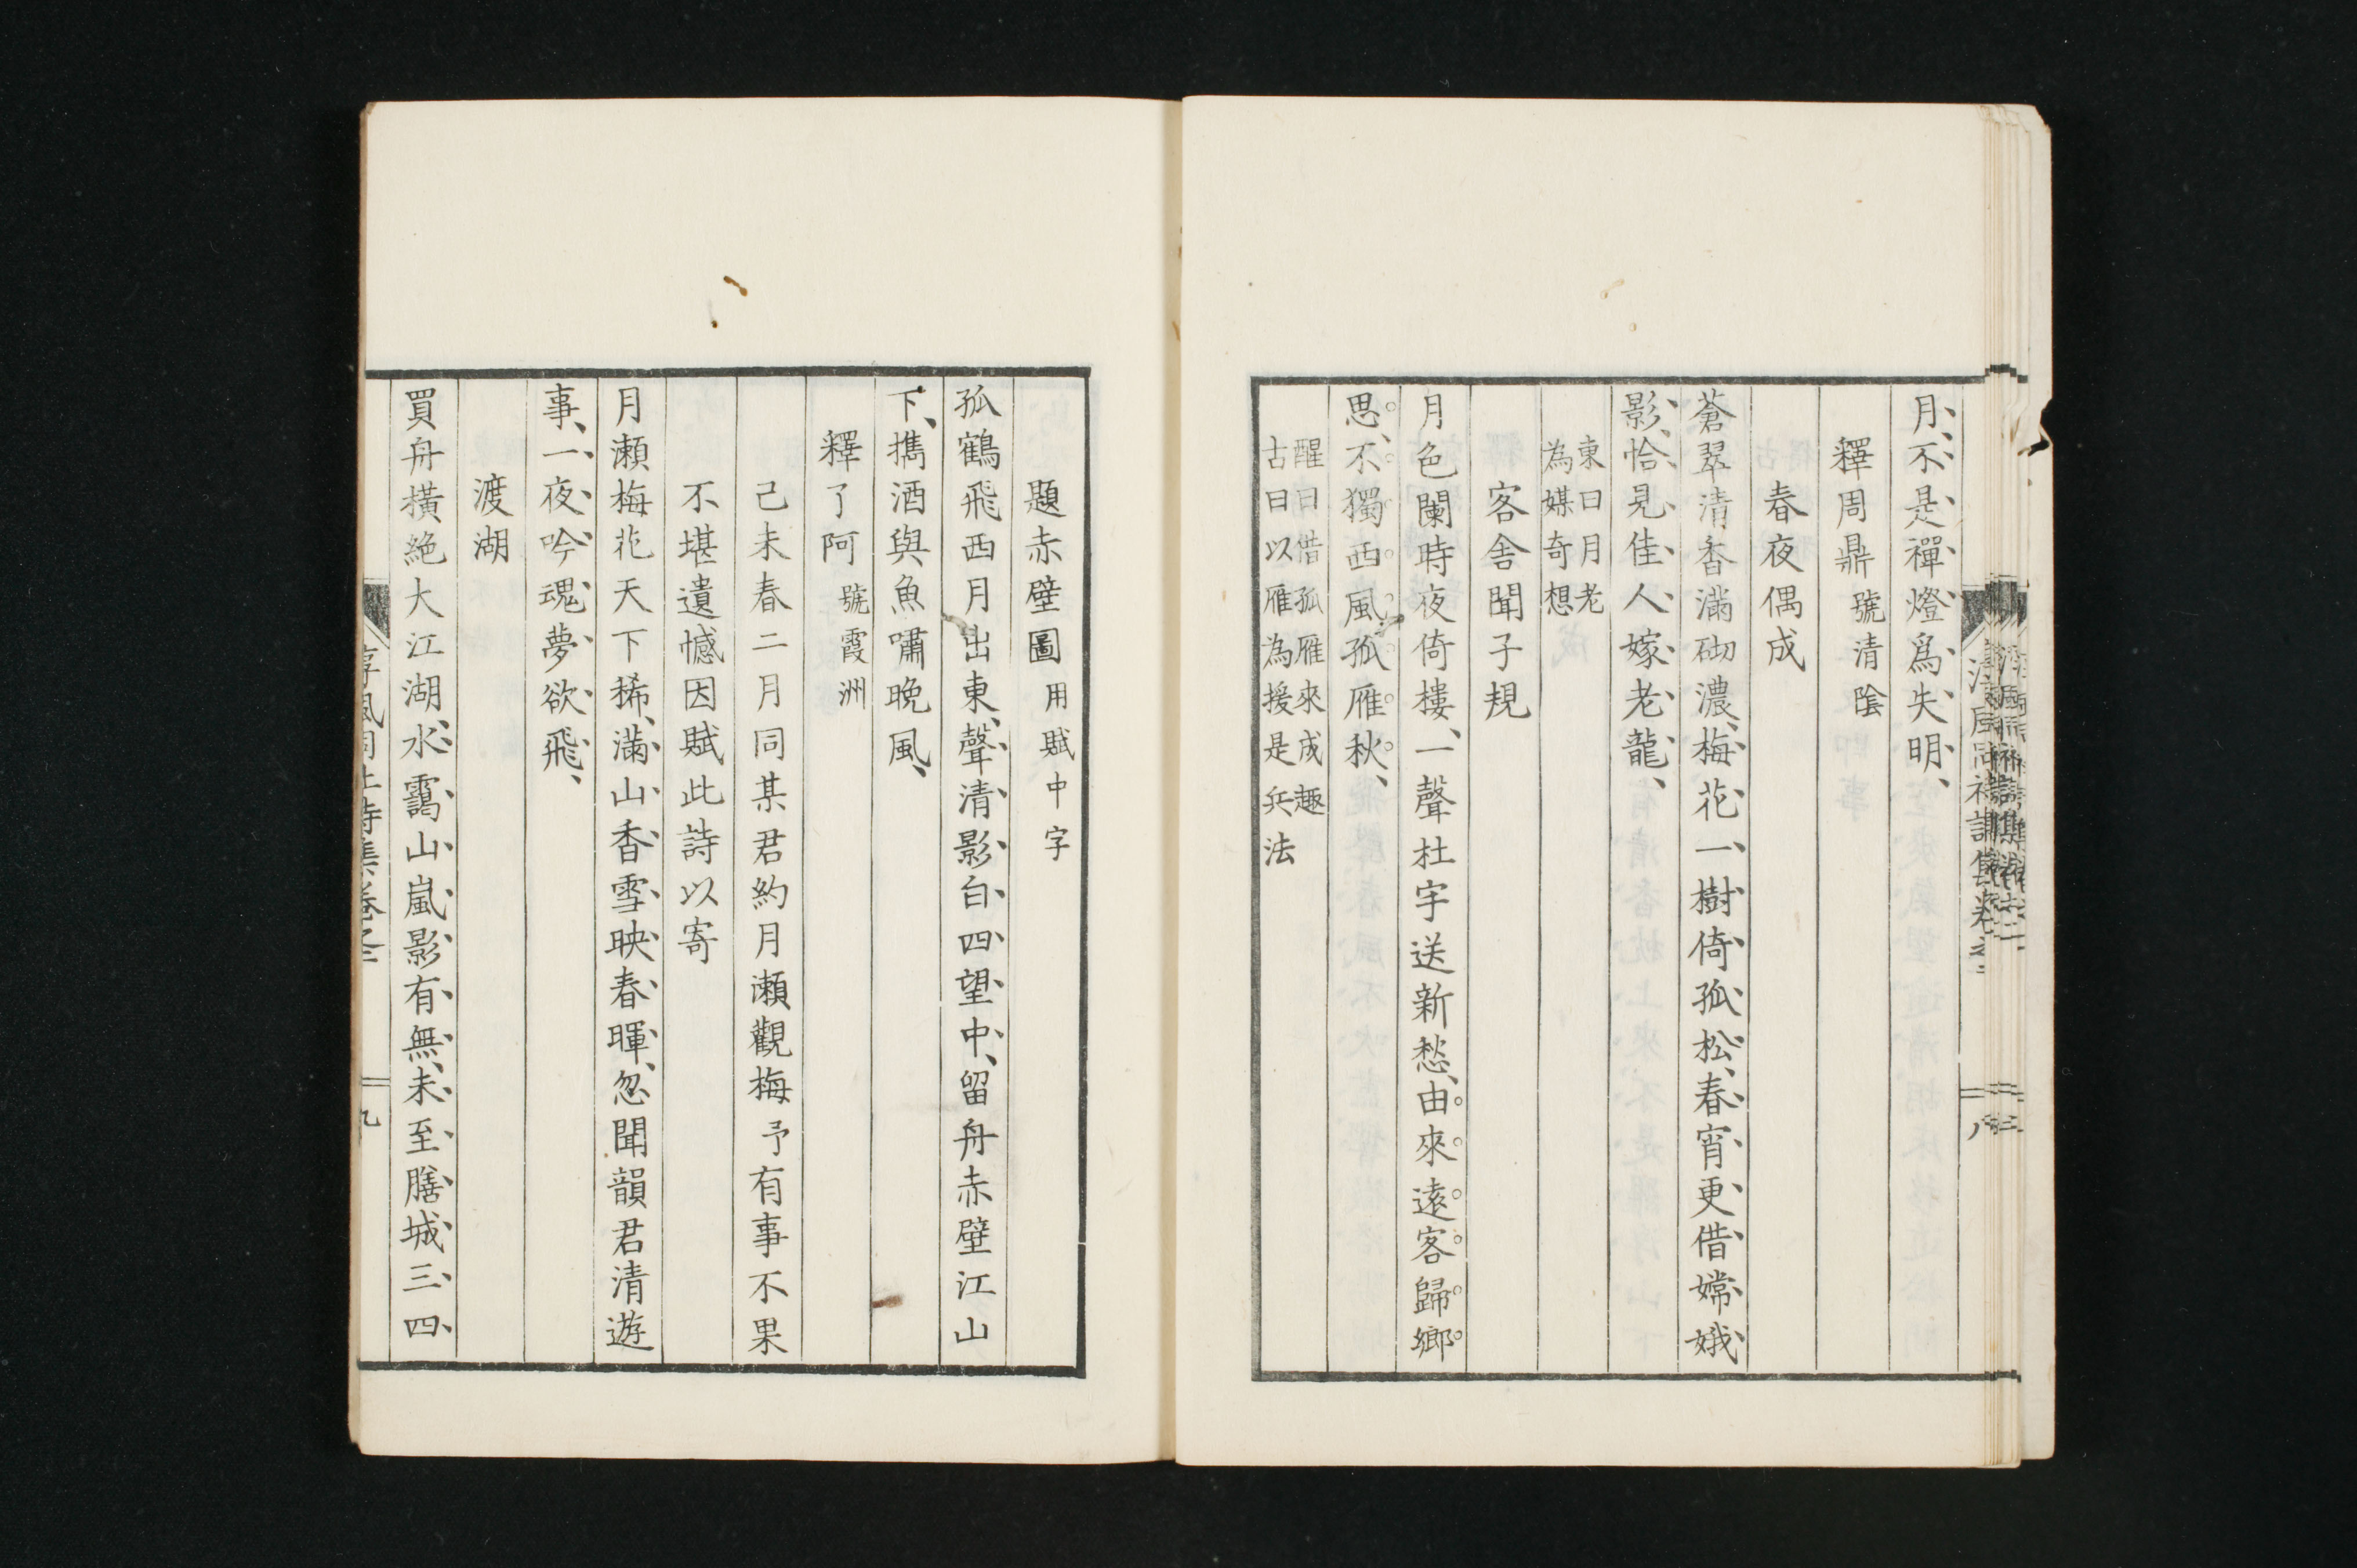 月、不是禪燈爲失明、
釋周鼎 號清陰
春夜偶成
蒼翠清香滿砌濃、梅花一樹倚孤松、春宵更借嫦娥
影、恰見佳人嫁老龍、
東曰月老
為媒奇想
客舍聞子規
月色闌時夜倚樓、一聲杜宇送新愁、由來遠客歸鄉
思、不獨西風孤雁秋、
醒曰借孤雁來成趣
古曰以雁為援是兵法
題赤壁圖 用賦中字
孤鶴飛西月出東、聲清影白四望中、留舟赤壁江山
下、携酒與魚嘯晚風、
釋了阿 號霞洲
己未春二月同某君約月瀨觀梅予有事不果
不堪遺憾因賦此詩以寄
月瀨梅花天下稀、滿山香雪映春暉、忽聞韻君清遊
事、一夜吟魂夢欲飛、
渡湖
買舟橫絕大江湖、水靄山嵐影有無、未至膳城三四